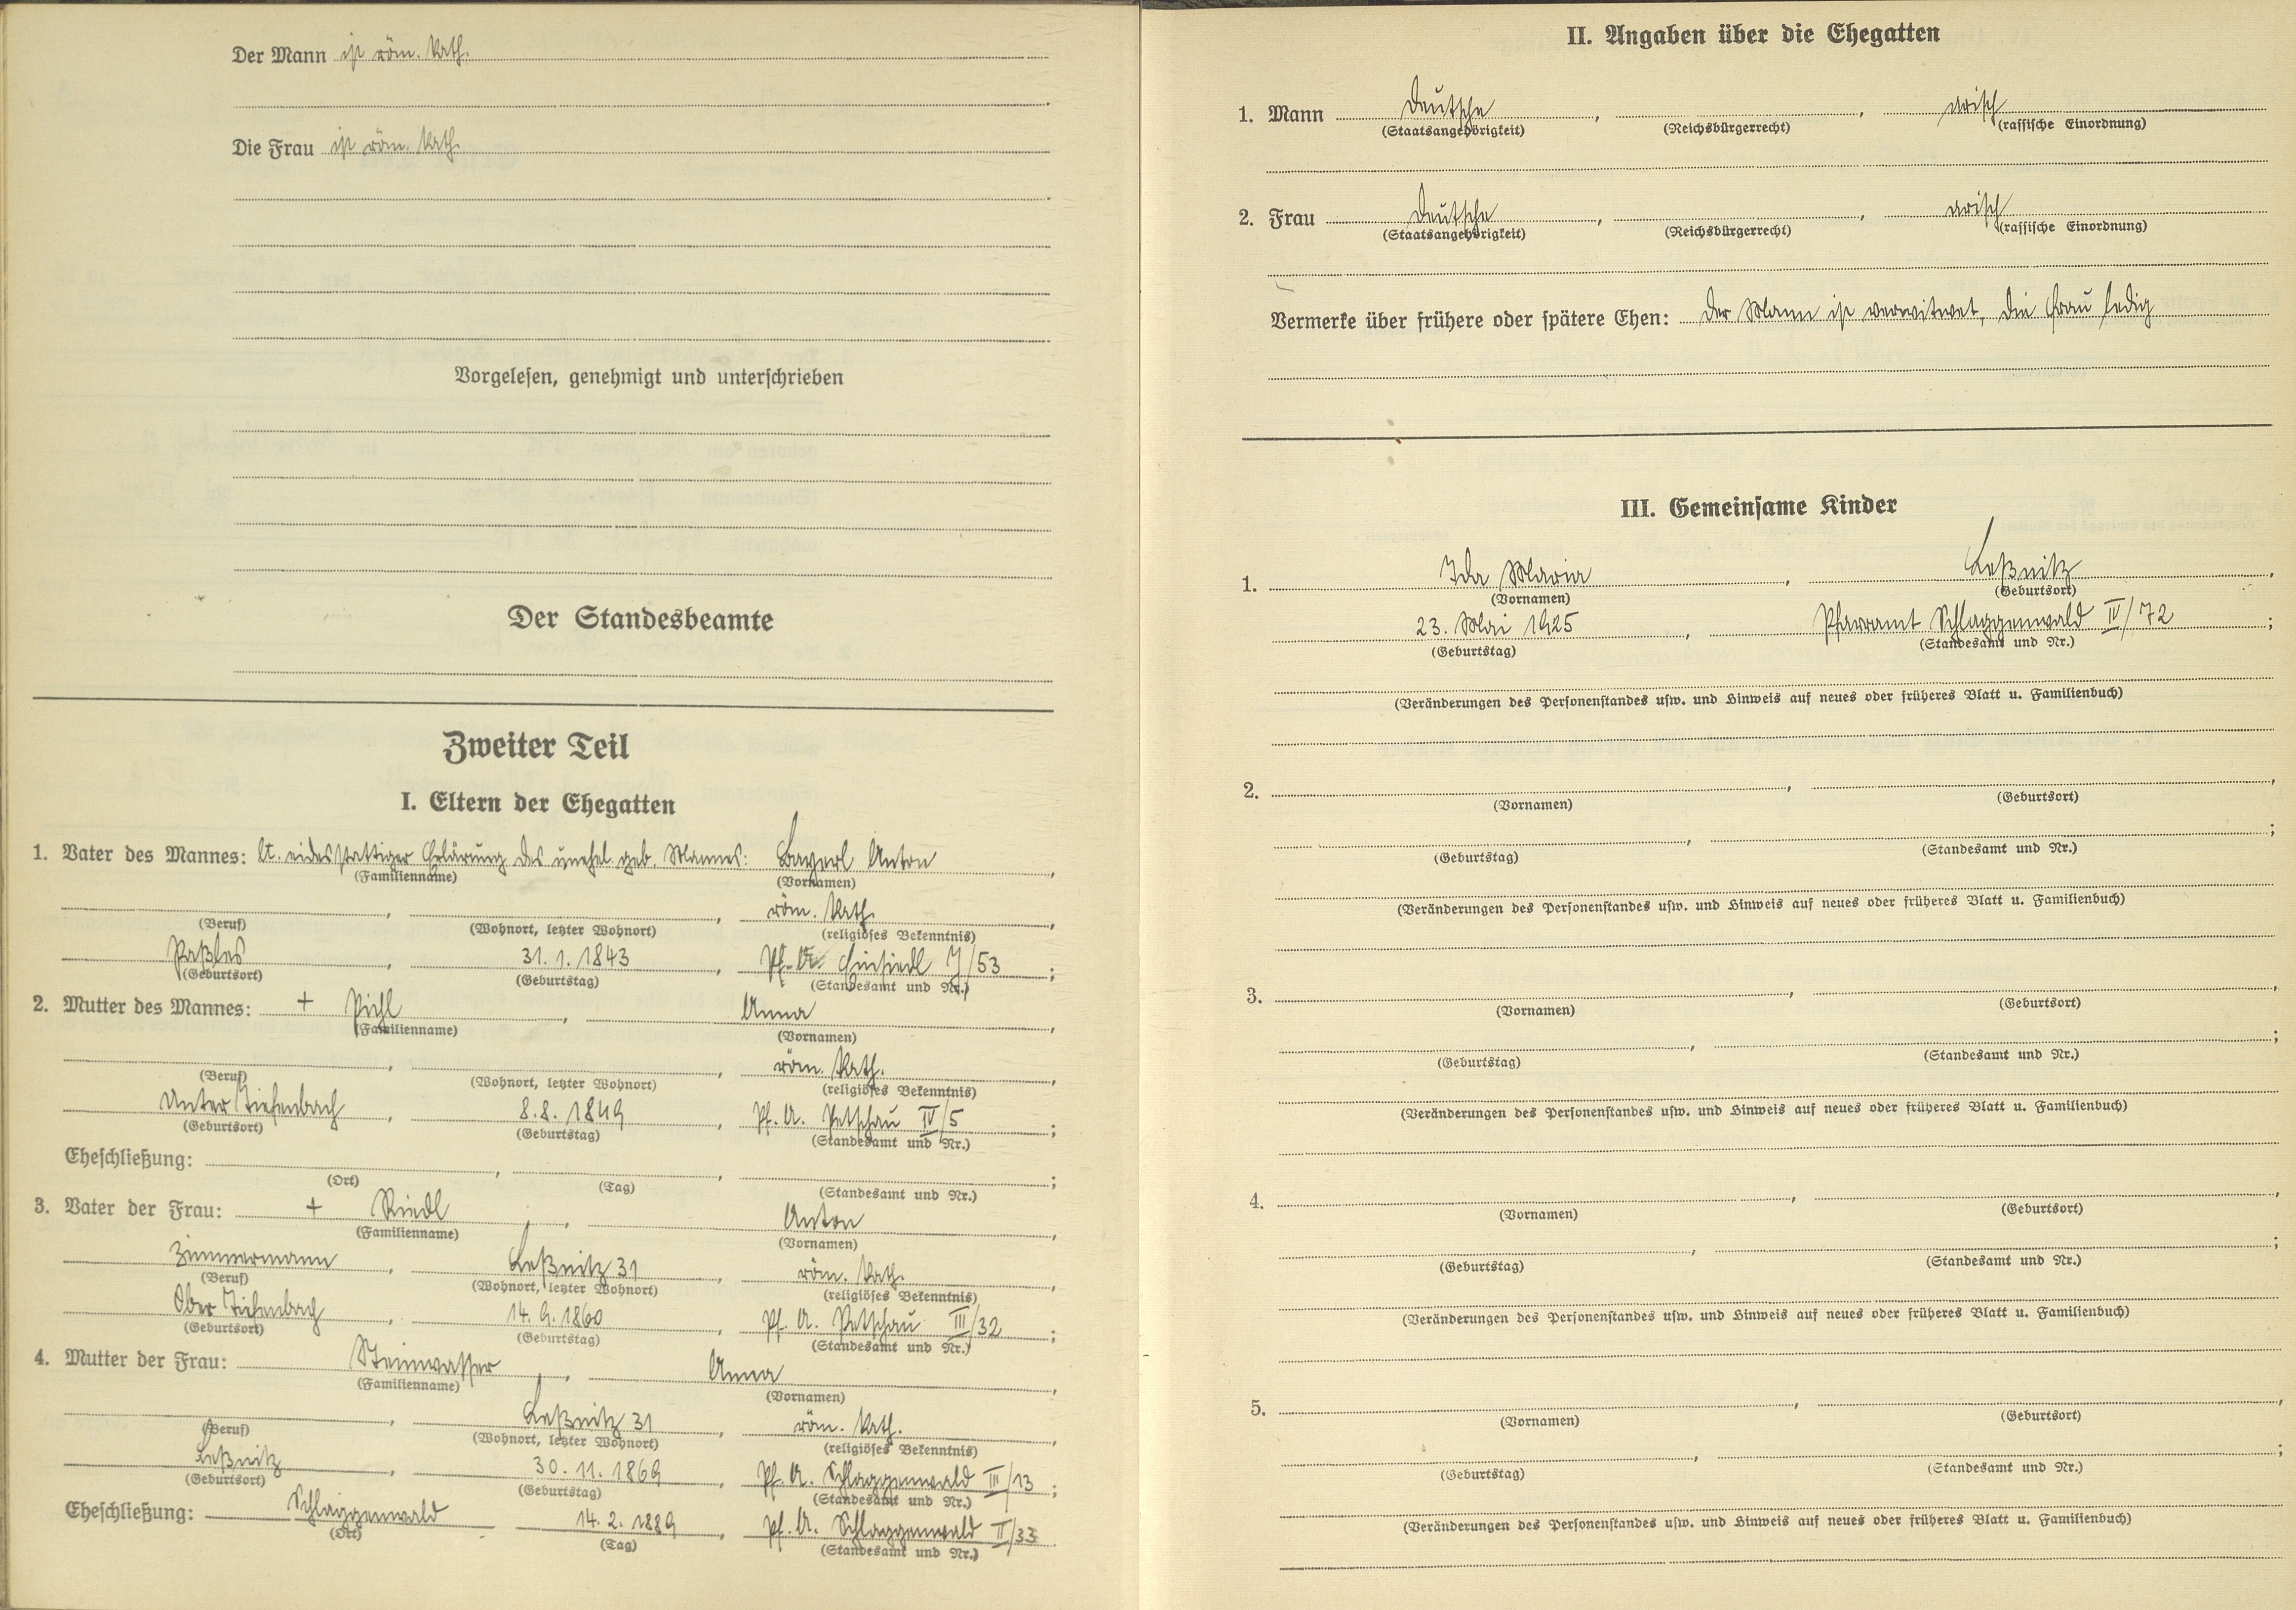 Der Mann ist röm. kath.
Die Frau ist röm. kath.
Vorgelesen, genehmigt und unterschrieben
Der Standesbeamte
Zweiter Teil
I. Eltern der Ehegatten
1. Vater des Mannes: lt. eidesstattiger Erklärung des unehel. geb. Mannes: Bayerl Anton,
(Familienname) (Vornamen)
, , röm. kath.,
(Beruf) (Wohnort, letzter Wohnort) (religiöses Bekenntnis)
Paßles, 31. 1. 1843, Pf. A. Einsiedl 7/53;
(Geburtsort) (Geburtstag) (Standesamt und Nr.)
2. Mutter des Mannes: + Pichl, Anna,
(Familienname) (Vornamen)
, , röm. kath.,
(Beruf) (Wohnort, letzter Wohnort) (religiöses Bekenntnis)
Unter Tiefenbach, 8. 8. 1849, Pf. A. Petschau IV/5;
(Geburtsort) (Geburtstag) (Standesamt und Nr.)
Eheschließung: , , ;
(Ort) (Tag) (Standesamt und Nr.)
3. Vater der Frau: + Riedl, Anton,
(Familienname) (Vornamen)
Zimmermann, Leßnitz 31, röm. kath.,
(Beruf) (Wohnort, letzter Wohnort) (religiöses Bekenntnis)
Ober Tiefenbach, 14. 9. 1860, Pf. A. Petschau III/32;
(Geburtsort) (Geburtstag) (Standesamt und Nr.)
4. Mutter der Frau: Steinwasser, Anna,
(Familienname) (Vornamen)
, Leßnitz 31, röm. kath.,
(Beruf) (Wohnort, letzter Wohnort) (religiöses Bekenntnis)
Leßnitz, 30. 11. 1869, Pf. A. Schlaggenwald III/13;
(Geburtsort) (Geburtstag) (Standesamt und Nr.)
Eheschließung: Schlaggenwald 14. 2. 1889, Pf. A. Schlaggenwald II/33
(Ort) (Tag) (Standesamt und Nr.)
II. Angaben über die Ehegatten
1. Mann Deutsche, , arisch
(Staatsangehörigkeit) (Reichsbürgerrecht) (rassische Einordnung)
2. Frau Deutsche, , arisch
(Staatsangehörigkeit) (Reichsbürgerrecht) (rassische Einordnung)
Vermerke über frühere oder spätere Ehen: Der Mann ist verwitwet, die Frau ledig
III. Gemeinsame Kinder
1. Ida Maria, Leßnitz,
(Vornamen) (Geburtsort)
23. Mai 1925, Pfarramt Schlaggenwald IV/72;
(Geburtstag) (Standesamt und Nr.)
(Veränderungen des Personenstandes usw. und Hinweis auf neues oder früheres Blatt u. Familienbuch)
2. , ,
(Vornamen) (Geburtsort)
, ;
(Geburtstag) (Standesamt und Nr.)
(Veränderungen des Personenstandes usw. und Hinweis auf neues oder früheres Blatt u. Familienbuch)
3. , ,
(Vornamen) (Geburtsort)
, ;
(Geburtstag) (Standesamt und Nr.)
(Veränderungen des Personenstandes usw. und Hinweis auf neues oder früheres Blatt u. Familienbuch)
4. , ,
(Vornamen) (Geburtsort)
, ;
(Geburtstag) (Standesamt und Nr.)
(Veränderungen des Personenstandes usw. und Hinweis auf neues oder früheres Blatt u. Familienbuch)
5. , ,
(Vornamen) (Geburtsort)
, ;
(Geburtstag) (Standesamt und Nr.)
(Veränderungen des Personenstandes usw. und Hinweis auf neues oder früheres Blatt u. Familienbuch)